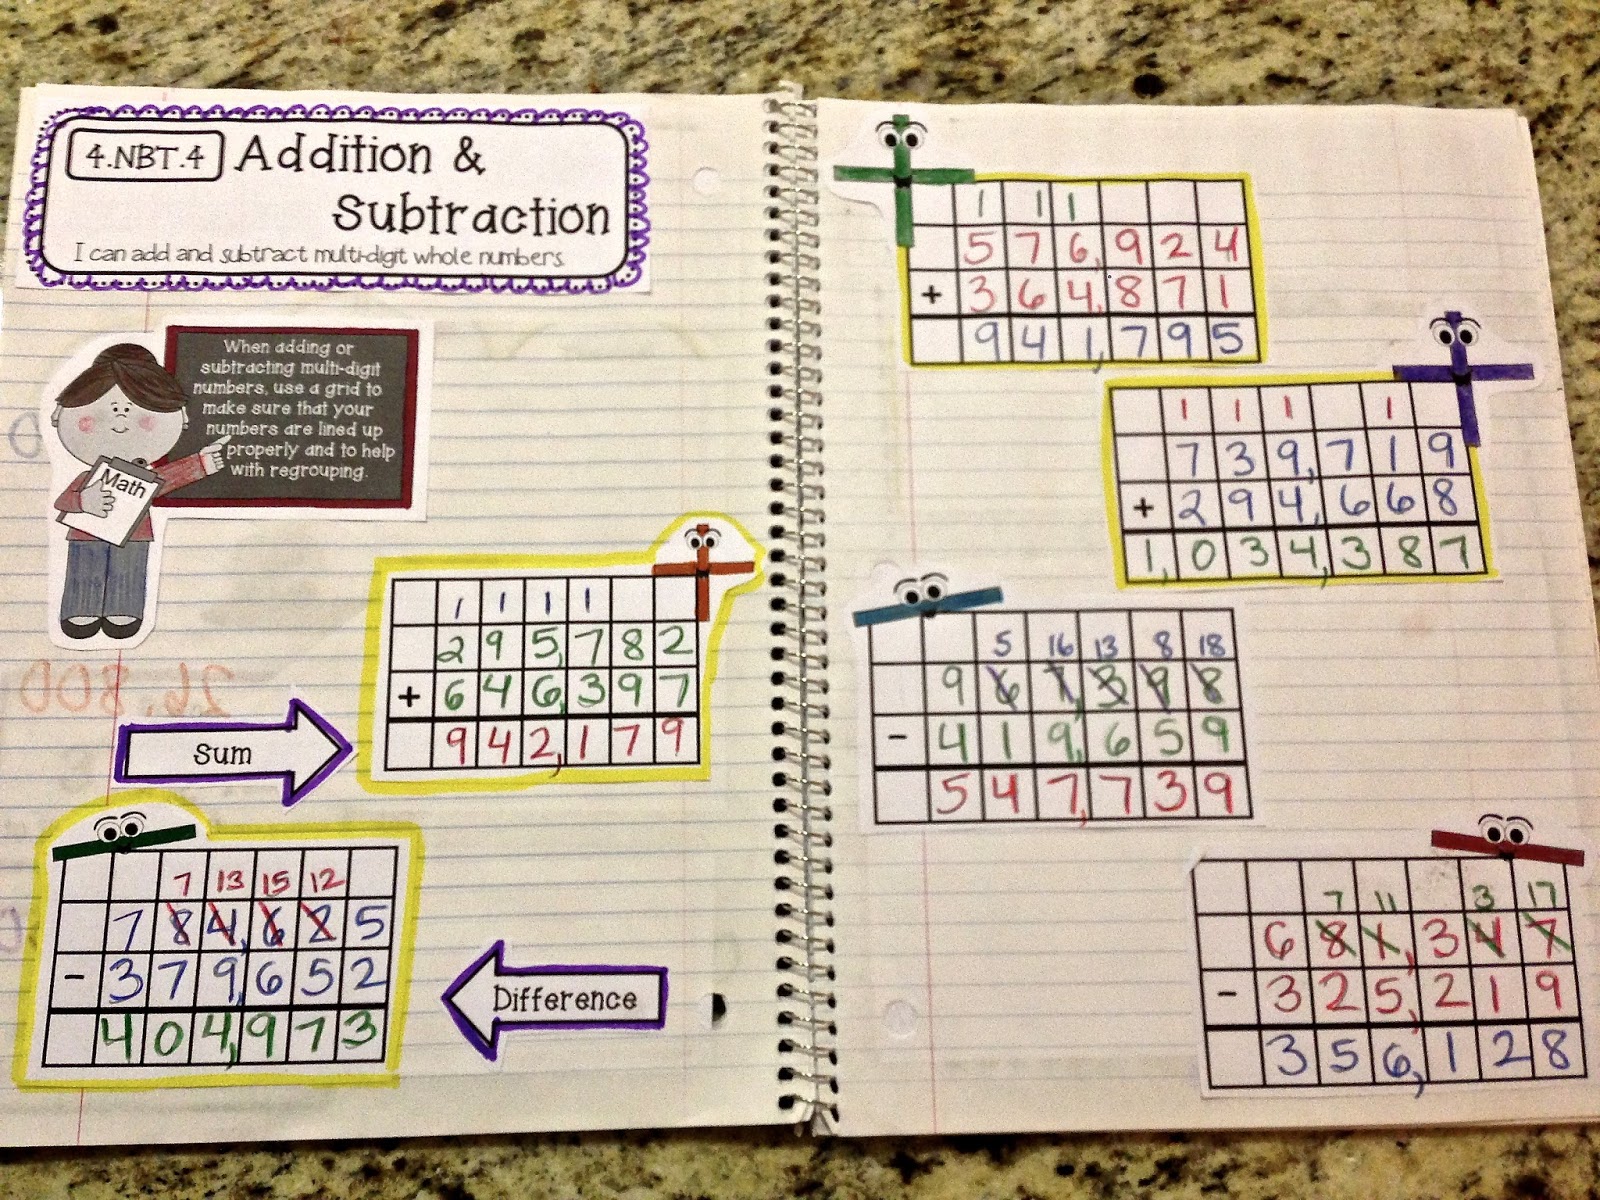 4.NBT.4 Addition &
Subtraction
I can add and subtract multi-digit whole numbers.
When adding or
subtracting multi-digit
numbers, use a grid to
make sure that your
numbers are lined up
properly and to help
with regrouping.
Math
1 1 1 1
2 9 5, 7 8 2
+ 6 4 6, 3 9 7
9 4 2, 1 7 9
Sum
7 13 15 12
7 8 4, 6 2 5
- 3 7 9, 6 5 2
4 0 4, 9 7 3
Difference
1 1 1
5 7 6, 9 2 4
+ 3 6 4, 8 7 1
9 4 1, 7 9 5
1 1 1 1
7 3 9, 7 1 9
+ 2 9 4, 6 6 8
1, 0 3 4, 3 8 7
5 16 13 8 18
9 6 7, 3 9 8
- 4 1 9, 6 5 9
5 4 7, 7 3 9
7 11 3 17
6 8 1, 3 4 7
- 3 2 5, 2 1 9
3 5 6, 1 2 8